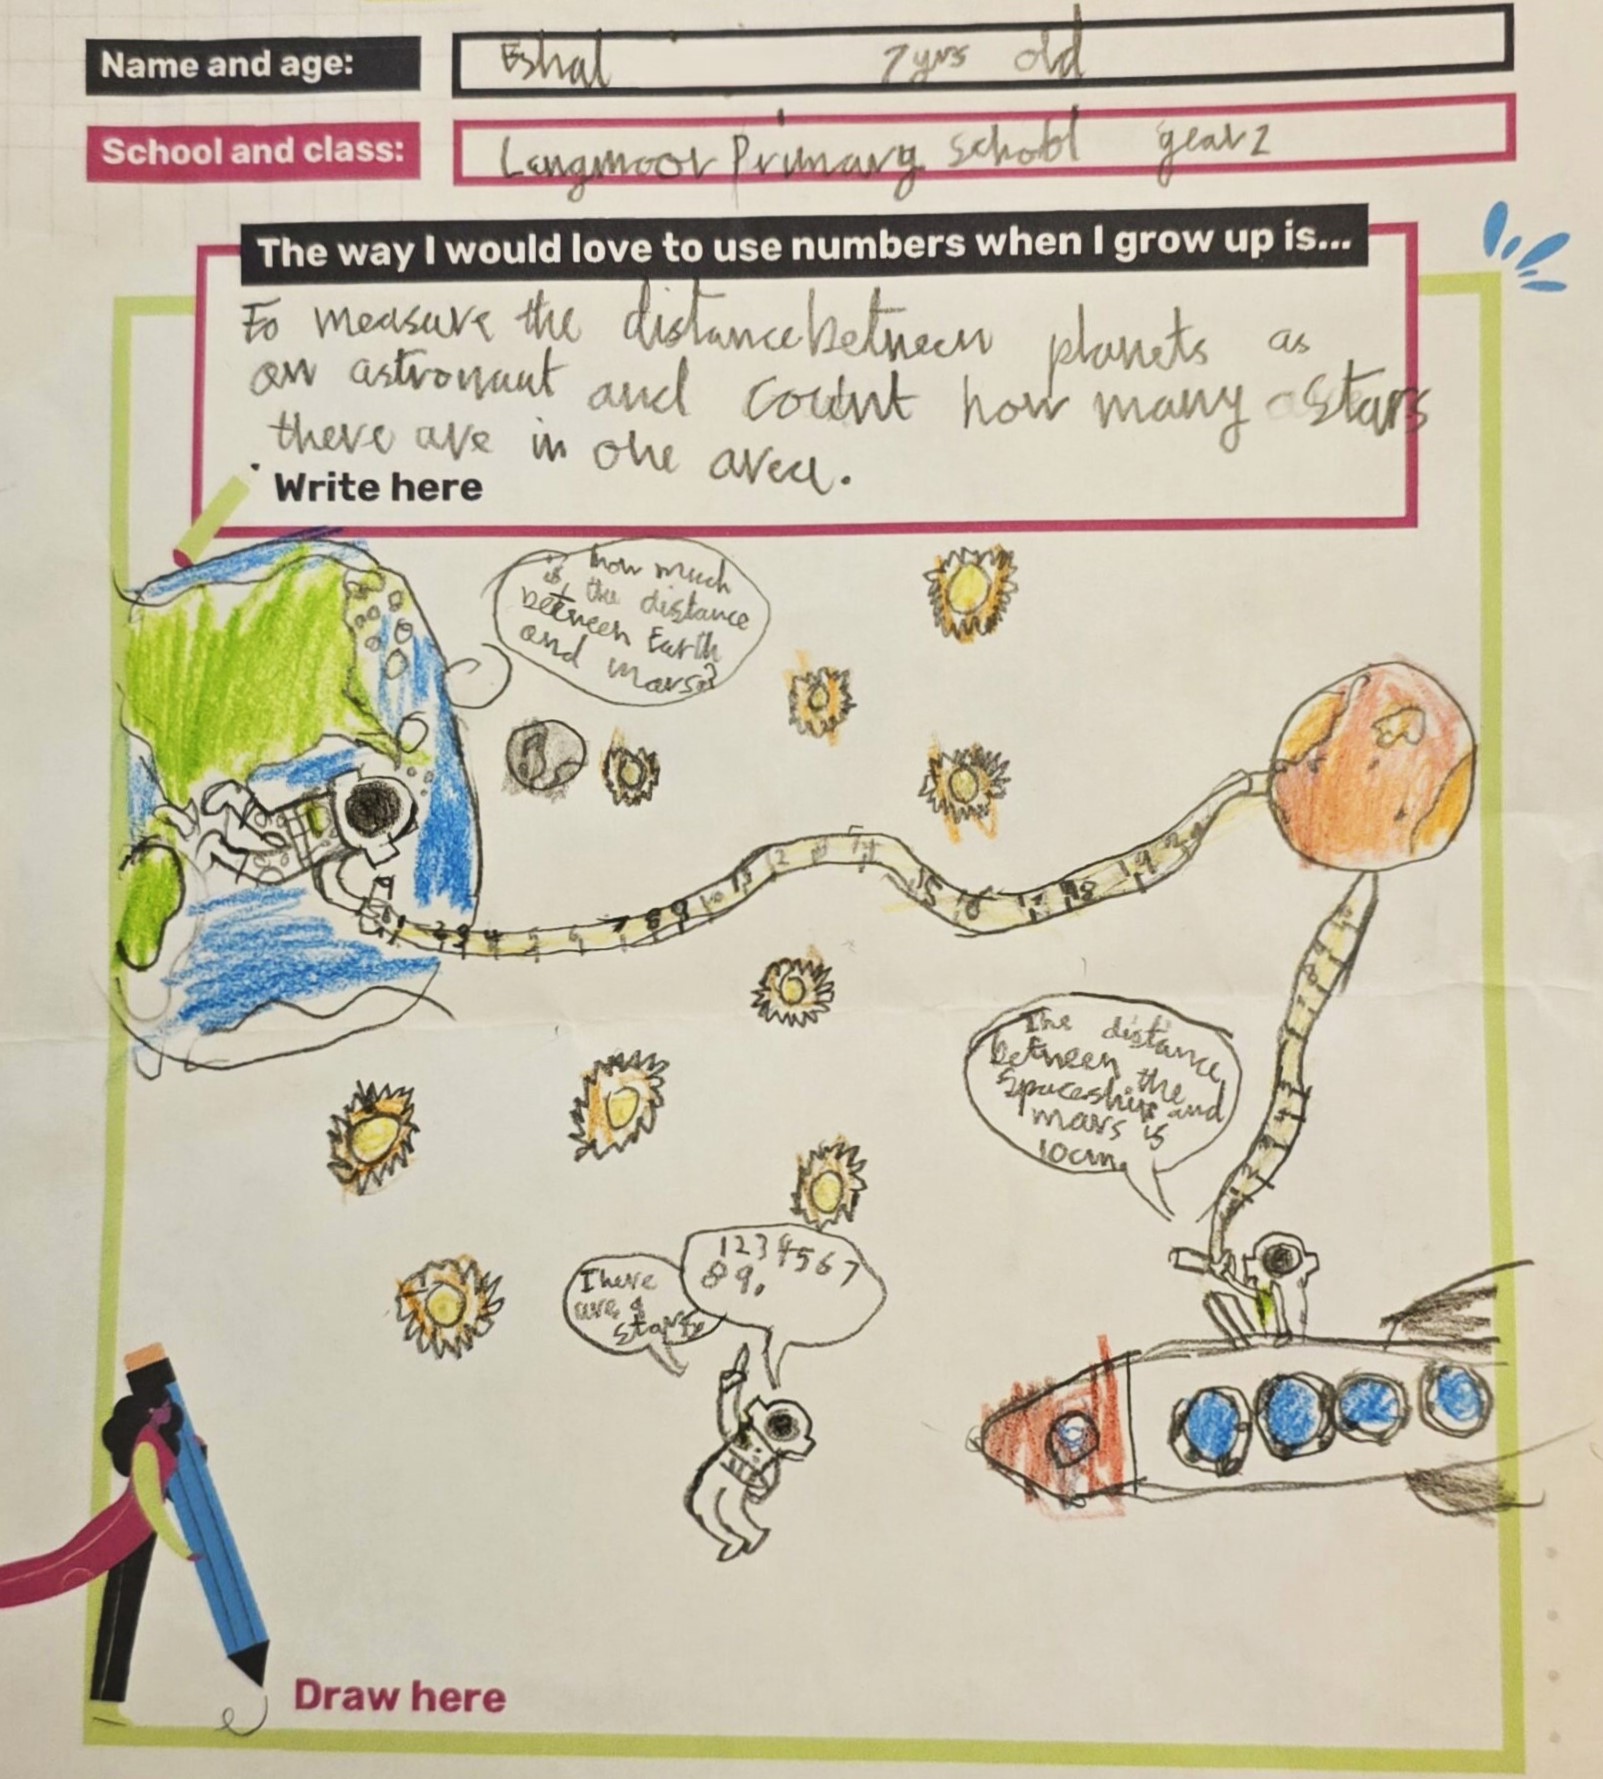 Name and age:
Eshal 7 yrs old
School and class:
Langmoor Primary school year 2
The way I would love to use numbers when I grow up is...
To measure the distance between planets as
an astronaut and count how many stars
there are in one area.
Write here
how much
is the distance
between Earth
and mars?
The distance
between the
spaceship and
mars is
10cm
1 2 3 4 5 6 7
8 9.
There
are 9
stars
12
13
14
15
16
17
18
19
Draw here